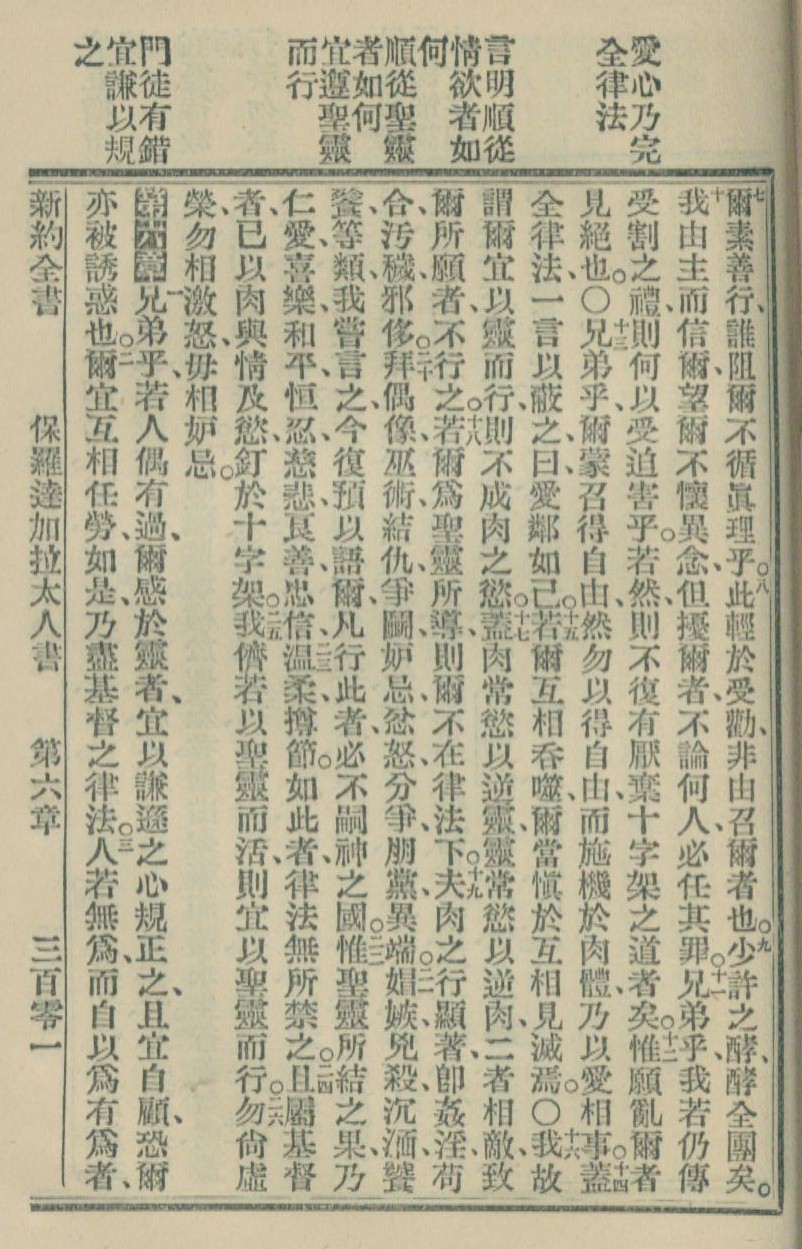 愛心乃完
全律法
言明順從
情欲者如
何
順從聖靈
者如何
宜遵聖靈
而行
門徒有錯
宜謙以規
之
七爾素善行、誰阻爾不循眞理乎。八此輕於受勸、非由召爾者也。九少許之酵、酵全團矣。
十我由主而信爾、望爾不懷異念、但擾爾者、不論何人、必任其罪。十一兄弟乎、我若仍傳
受割之禮、則何以受迫害乎。若然、則不復有厭棄十字架之道者矣。十二惟願亂爾者
見絕也。〇十三兄弟乎、爾蒙召得自由、然勿以得自由、而施機於肉體、乃以愛相事。十四蓋
全律法、一言以蔽之、曰、愛鄰如己。十五若爾互相吞噬、爾當愼於互相見滅焉。〇十六我故
謂爾宜以靈而行、則不成肉之慾。十七蓋肉常慾以逆靈、靈常慾以逆肉、二者相敵、致
爾所願者、不行之。十八若爾爲聖靈所導、則爾不在律法下。十九夫肉之行顯著、卽姦淫、苟
合、汚穢、邪侈。二十拜偶像、巫術、結仇、爭鬭、妒忌、忿怒、分爭、朋黨、異端。二一娼嫉、兇殺、沉湎、饕
餮、等類、我嘗言之、今復預以語爾、凡行此者、必不嗣神之國。二二惟聖靈所結之果、乃
仁愛、喜樂、和平、恒忍、慈悲、良善、忠信、二三温柔、撙節。如此者、律法無所禁之。二四且屬基督
者、已以肉與情及慾、釘於十字架。二五我儕若以聖靈而活、則宜以聖靈而行。二六勿尙虛
榮、勿相激怒、毋相妒忌。
第六章一兄弟乎、若人偶有過、爾感於靈者、宜以謙遜之心規正之、且宜自顧、恐爾
亦被誘惑也。二爾宜互相任勞、如是、乃盡基督之律法。三人若無爲、而自以爲有爲者、
新約全書 保羅達加拉太人書 第六章 三百零一